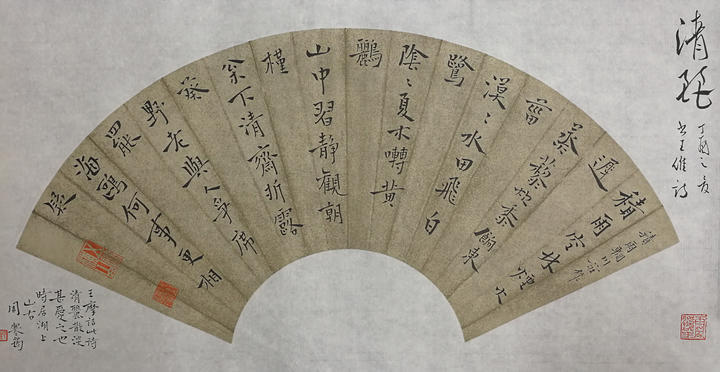 清
丁酉之夏
书王維詩
積雨輞川莊作
積雨空林煙火
遲
蒸藜炊黍餉東
菑
漠〻水田飛白
鷺
陰〻夏木囀黃
鸝
山中習靜觀朝
槿
枀下清齋折露
葵
野老與人爭席
罷
海鷗何事更相
疑
王摩詰此詩
清麗散淡
甚愛之也
時居湖上
山右
周